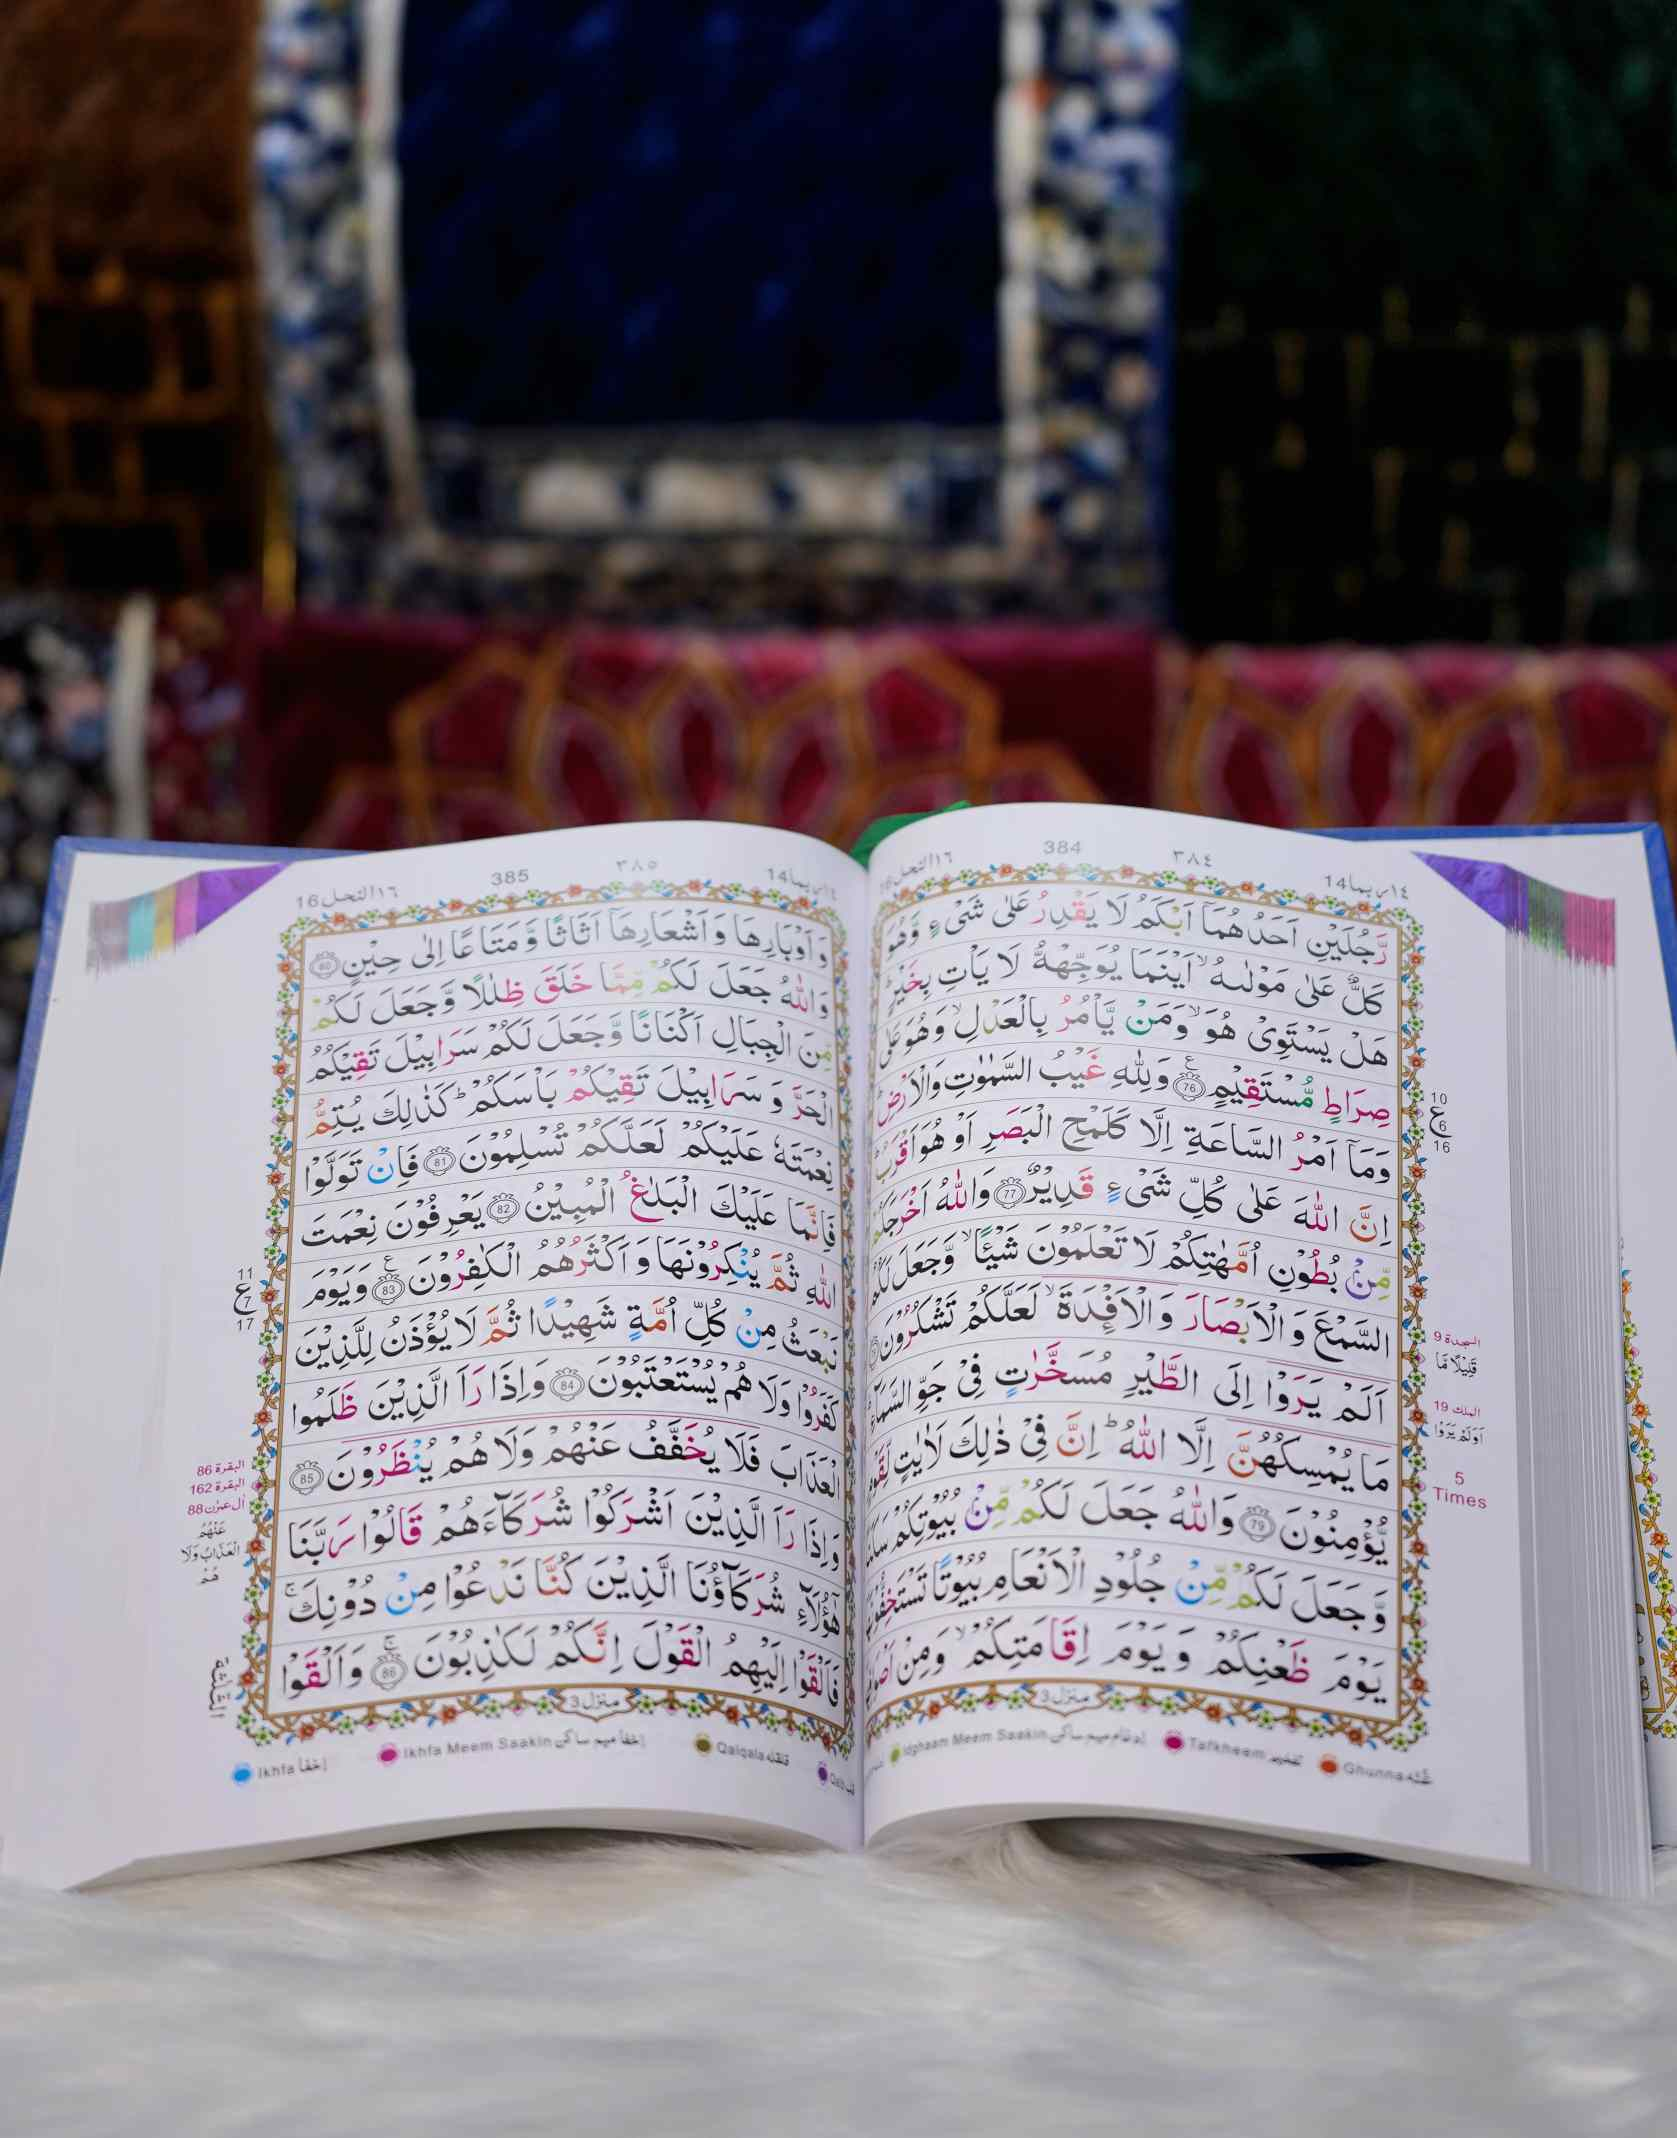 ربما ١٤ 14
٣٨٤
384
النحل ١٦
رَّجُلَيْنِ اَحَدُهُمَاۤ اَبْكَمُ لَا يَقْدِرُ عَلٰى شَىْءٍ وَّهُوَ
كَلٌّ عَلٰى مَوْلٰىهُ ۙ اَيْنَمَا يُوَجِّهْهُّ لَا يَاْتِ بِخَيْرٍ ؕ
هَلْ يَسْتَوِىْ هُوَ ۙ وَمَنْ يَّاْمُرُ بِالْعَدْلِ ۙ وَهُوَ عَلٰى
صِرَاطٍ مُّسْتَقِيْمٍ 76 وَلِلّٰهِ غَيْبُ السَّمٰوٰتِ وَالْاَرْضِ ؕ
وَمَاۤ اَمْرُ السَّاعَةِ اِلَّا كَلَمْحِ الْبَصَرِ اَوْ هُوَ اَقْرَبُ ؕ
اِنَّ اللّٰهَ عَلٰى كُلِّ شَىْءٍ قَدِيْرٌ 77 وَاللّٰهُ اَخْرَجَكُمْ
مِّنْۢ بُطُوْنِ اُمَّهٰتِكُمْ لَا تَعْلَمُوْنَ شَيْئًا ۙ وَّجَعَلَ لَكُمُ
السَّمْعَ وَالْاَبْصَارَ وَالْاَفْـِٕدَةَ ۙ لَعَلَّكُمْ تَشْكُرُوْنَ
اَلَمْ يَرَوْا اِلَى الطَّيْرِ مُسَخَّرٰتٍ فِىْ جَوِّ السَّمَآءِ
مَا يُمْسِكُهُنَّ اِلَّا اللّٰهُ ؕ اِنَّ فِىْ ذٰلِكَ لَاٰيٰتٍ لِّقَوْمٍ
يُّؤْمِنُوْنَ 79 وَاللّٰهُ جَعَلَ لَكُمْ مِّنْۢ بُيُوْتِكُمْ سَكَنًا
وَّجَعَلَ لَكُمْ مِّنْ جُلُوْدِ الْاَنْعَامِ بُيُوْتًا تَسْتَخِفُّوْنَهَا
يَوْمَ ظَعْنِكُمْ وَيَوْمَ اِقَامَتِكُمْ ۙ وَمِنْ اَصْوَافِهَا
10
ع
6
16
السجدة 9
قَلِيْلًا مَّا
الملك 19
اَوَلَمْ يَرَوْا
5
Times
منزل 3
Ghunna غُنّه
Tafkheem تفخیم
Idghaam Meem Saakin ادغام میم ساکن
ربما ١٤ 14
٣٨٥
385
النحل ١٦ 16
وَاَوْبَارِهَا وَاَشْعَارِهَاۤ اَثَاثًا وَّمَتَاعًا اِلٰى حِيْنٍ 80
وَاللّٰهُ جَعَلَ لَكُمْ مِّمَّا خَلَقَ ظِلٰلًا وَّجَعَلَ لَكُمْ
مِّنَ الْجِبَالِ اَكْنَانًا وَّجَعَلَ لَكُمْ سَرَابِيْلَ تَقِيْكُمُ
الْحَرَّ وَسَرَابِيْلَ تَقِيْكُمْ بَاْسَكُمْ ؕ كَذٰلِكَ يُتِمُّ
نِعْمَتَهٗ عَلَيْكُمْ لَعَلَّكُمْ تُسْلِمُوْنَ 81 فَاِنْ تَوَلَّوْا
فَاِنَّمَا عَلَيْكَ الْبَلٰغُ الْمُبِيْنُ 82 يَعْرِفُوْنَ نِعْمَتَ
اللّٰهِ ثُمَّ يُنْكِرُوْنَهَا وَاَكْثَرُهُمُ الْكٰفِرُوْنَ 83 وَيَوْمَ
نَبْعَثُ مِنْ كُلِّ اُمَّةٍ شَهِيْدًا ثُمَّ لَا يُؤْذَنُ لِلَّذِيْنَ
كَفَرُوْا وَلَا هُمْ يُسْتَعْتَبُوْنَ 84 وَاِذَا رَاَ الَّذِيْنَ ظَلَمُوا
الْعَذَابَ فَلَا يُخَفَّفُ عَنْهُمْ وَلَا هُمْ يُنْظَرُوْنَ 85
وَاِذَا رَاَ الَّذِيْنَ اَشْرَكُوْا شُرَكَآءَهُمْ قَالُوْا رَبَّنَا
هٰۤؤُلَآءِ شُرَكَآؤُنَا الَّذِيْنَ كُنَّا نَدْعُوْا مِنْ دُوْنِكَ ۚ
فَاَلْقَوْا اِلَيْهِمُ الْقَوْلَ اِنَّكُمْ لَكٰذِبُوْنَ 86 وَاَلْقَوْا
11
ع
7
17
البقرة 86
البقرة 162
اٰل عمرٰن 88
عَنْهُمُ
الْعَذَابُ وَلَا
هُمْ
الثلٰثة
منزل 3
Qalqala قلقله
Ikhfa Meem Saakin اخفا میم ساکن
Ikhfa اخفا